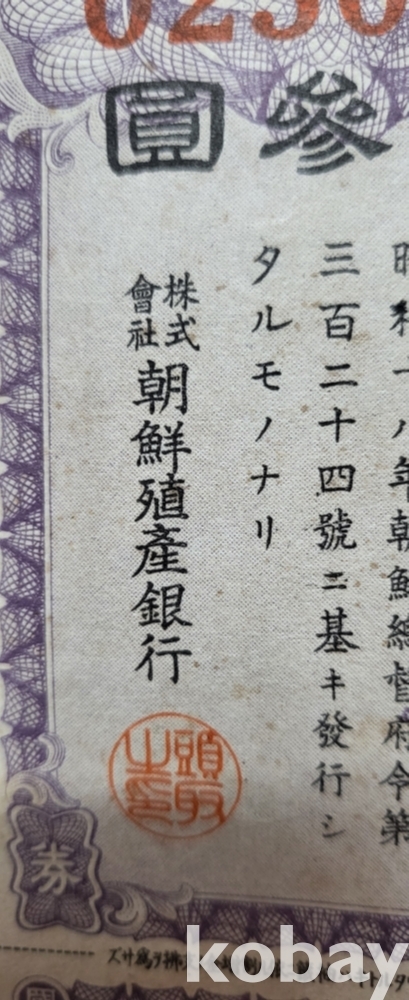 參圓
昭和十八年朝鮮總督府令第
三百二十四號ニ基キ發行シ
タルモノナリ
株式會社朝鮮殖產銀行
頭取之印
券
kobay